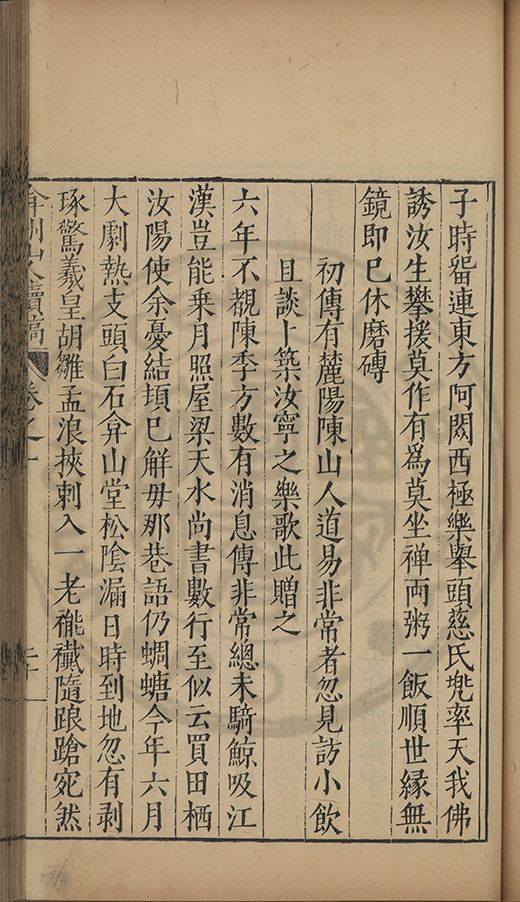 子時畱連東方阿閦西極樂舉頭慈氏兠率天我佛
誘汝生攀援莫作有爲莫坐禅両粥一飯順世縁無
鏡即巳休磨磚
初傳有麓陽陳山人道易非常者忽見訪小飲
且談卜築汝寧之樂歌此贈之
六年不覩陳季方數有消息傳非常總未騎鯨吸江
漢豈能乗月照屋梁天水尚書數行至似云買田栖
汝陽使余憂結頃巳解毋那巷語仍蜩螗今年六月
大劇熱支頭白石弇山堂松陰漏日時到地忽有剥
琢驚羲皇胡雛孟浪挾刺入一老䙰襶隨踉蹌宛然
弇州山人續稿 卷之十